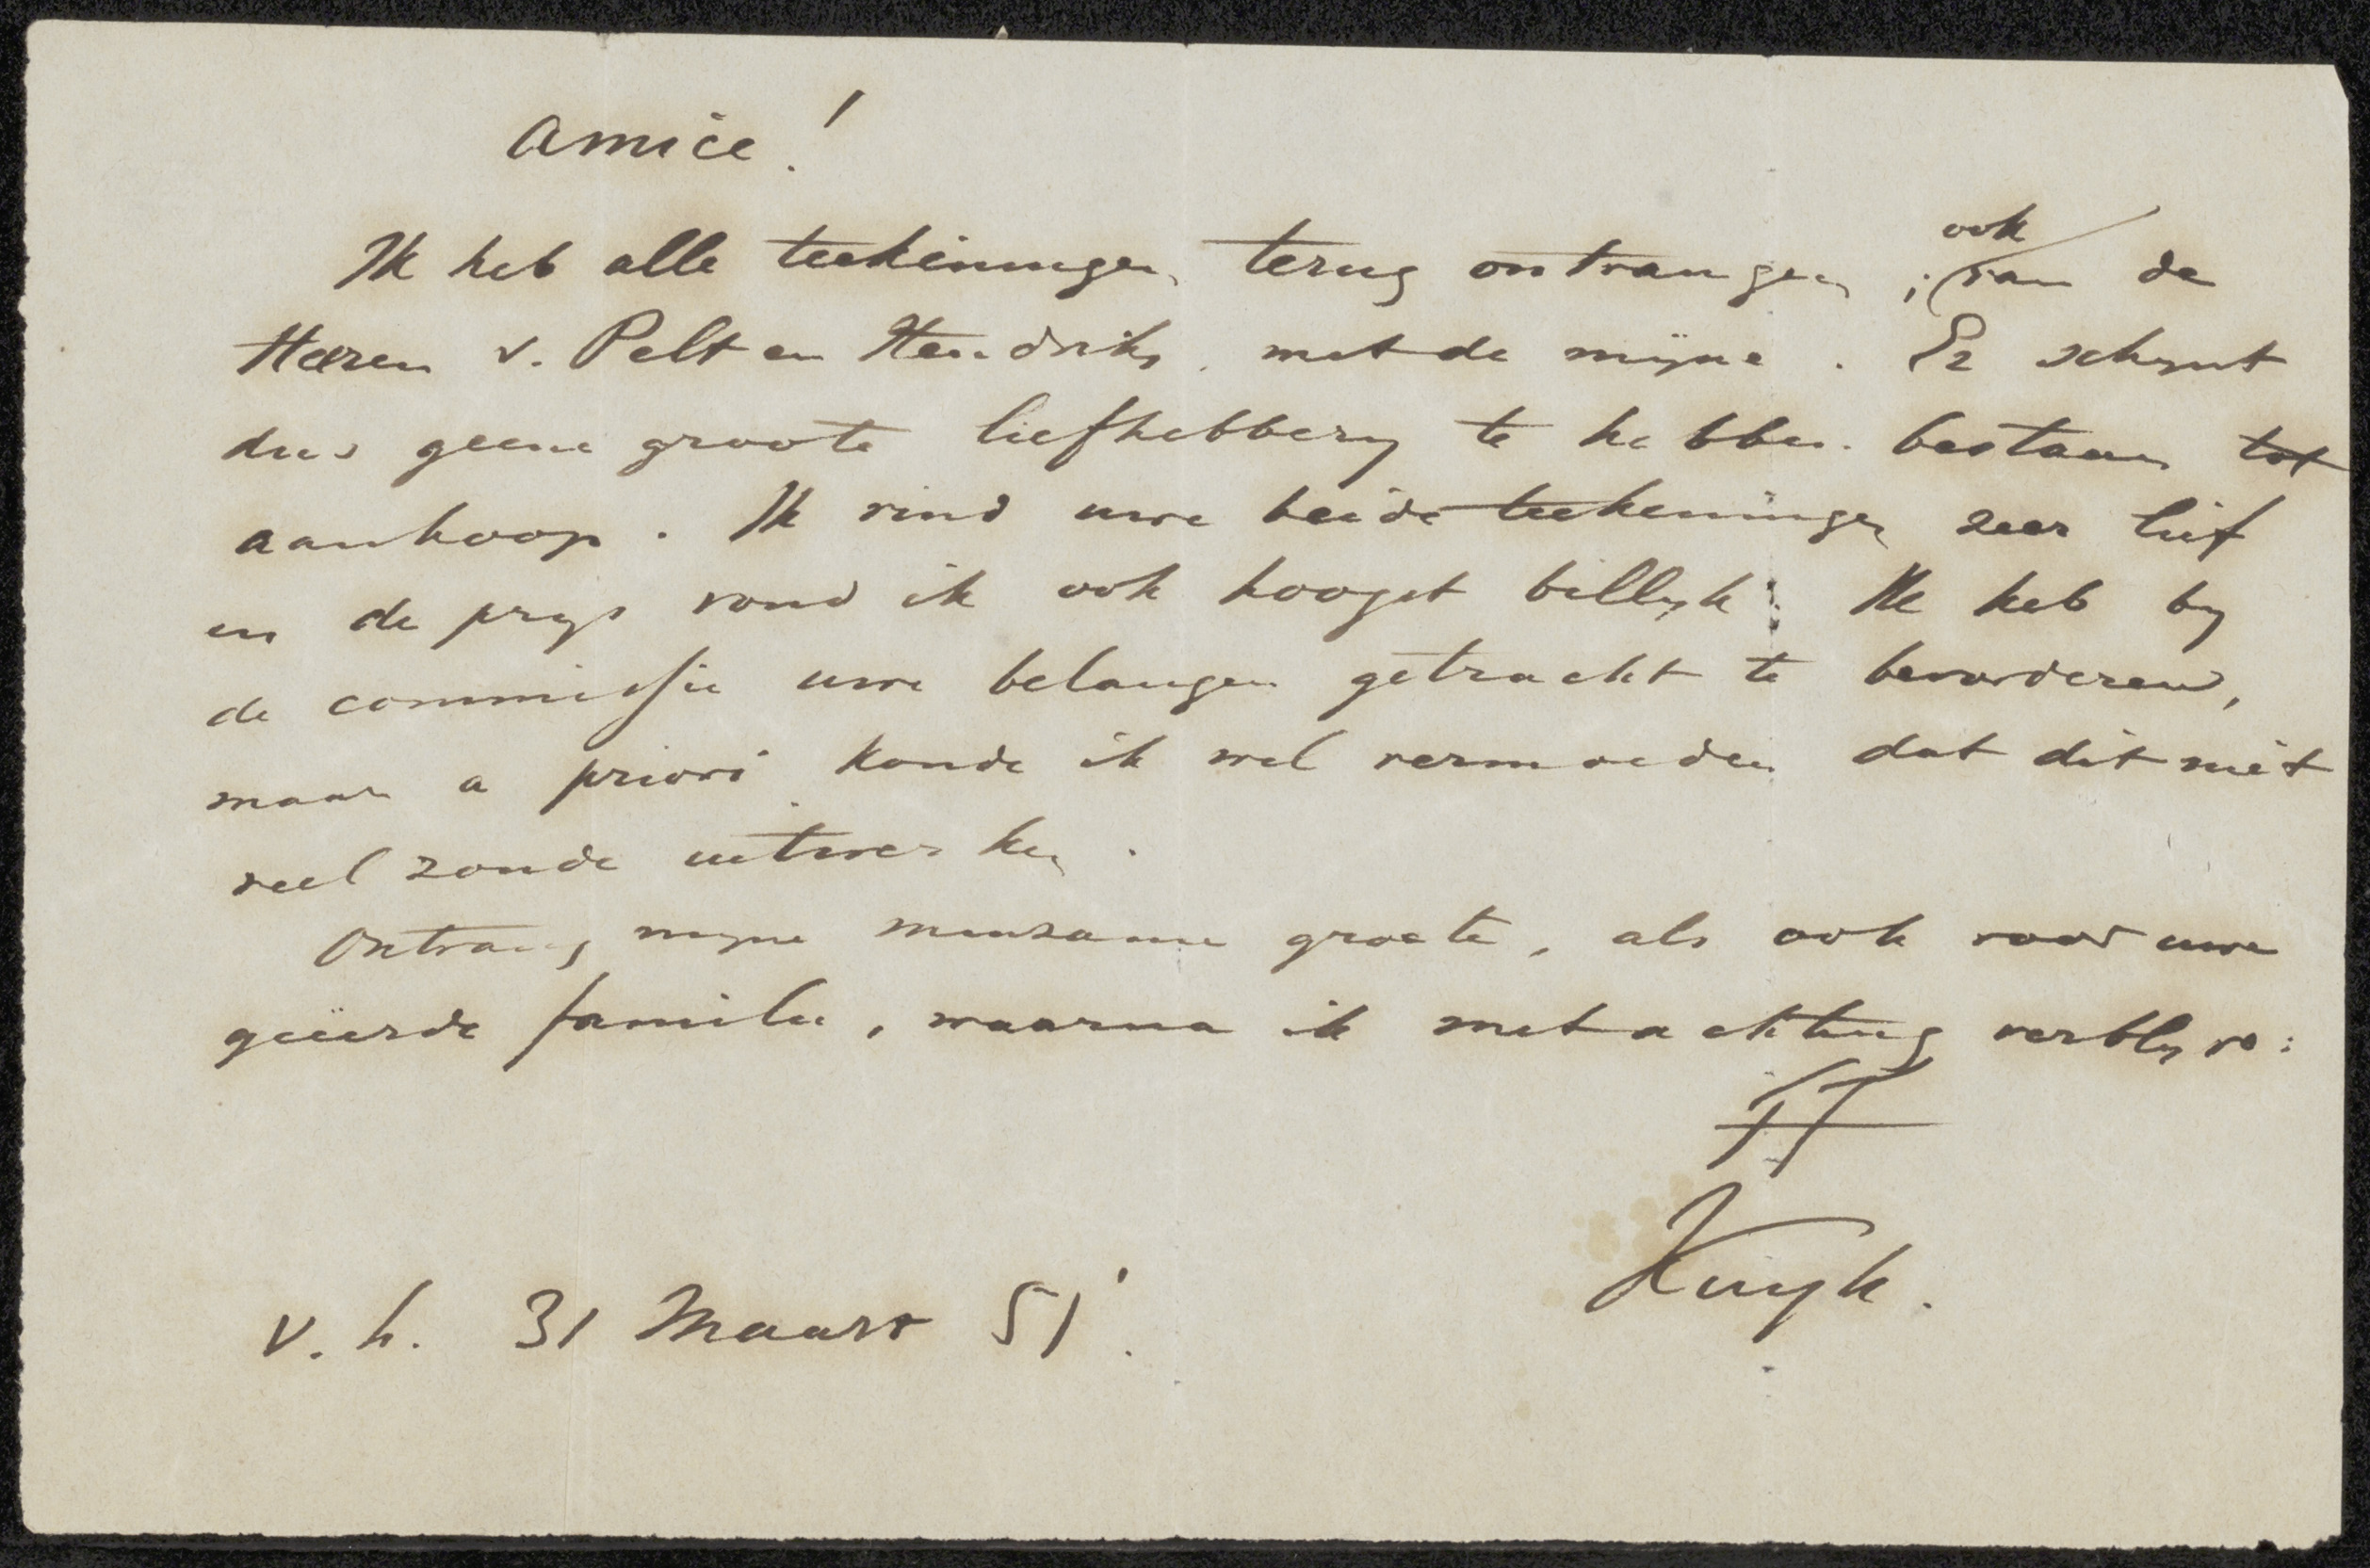 Amice!
Ik heb alle teekeningen terug ontvangen; ook van de
Heeren v. Pelt en Hendriks. met de mijne. Er schynt
dus geene groote liefhebbery te hebben bestaan tot
aankoop. Ik vind uwe beide teekeningen zeer lief
en de prys vond ik ook hoogst billyk. Ik heb by
de commissie uwe belangen getracht te bevorderen,
maar a priori konde ik wel vermoeden dat dit niet
veel zoude uitwerken.
Ontvang myne minzame groete, als ook voor uwe
geëerde familie, waarna ik met achting verblyve:
TT
Kuyk.
v. h. 31 Maart 51.